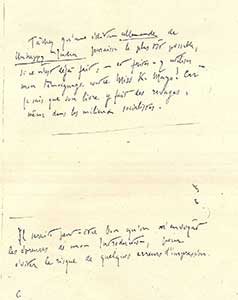 Tâchez qu'une édition allemande de
Unhappy India paraisse le plus tôt possible,
si ce n'est déjà fait, — et faites-y utiliser
mon témoignage contre Miss K. Mayo! Car
je sais que son livre y fait des ravages,
même dans les milieux socialistes.
Il serait peut-être bon qu'on m'envoyât
les épreuves de mon Introduction, pour
éviter le risque de quelques erreurs d'impression.